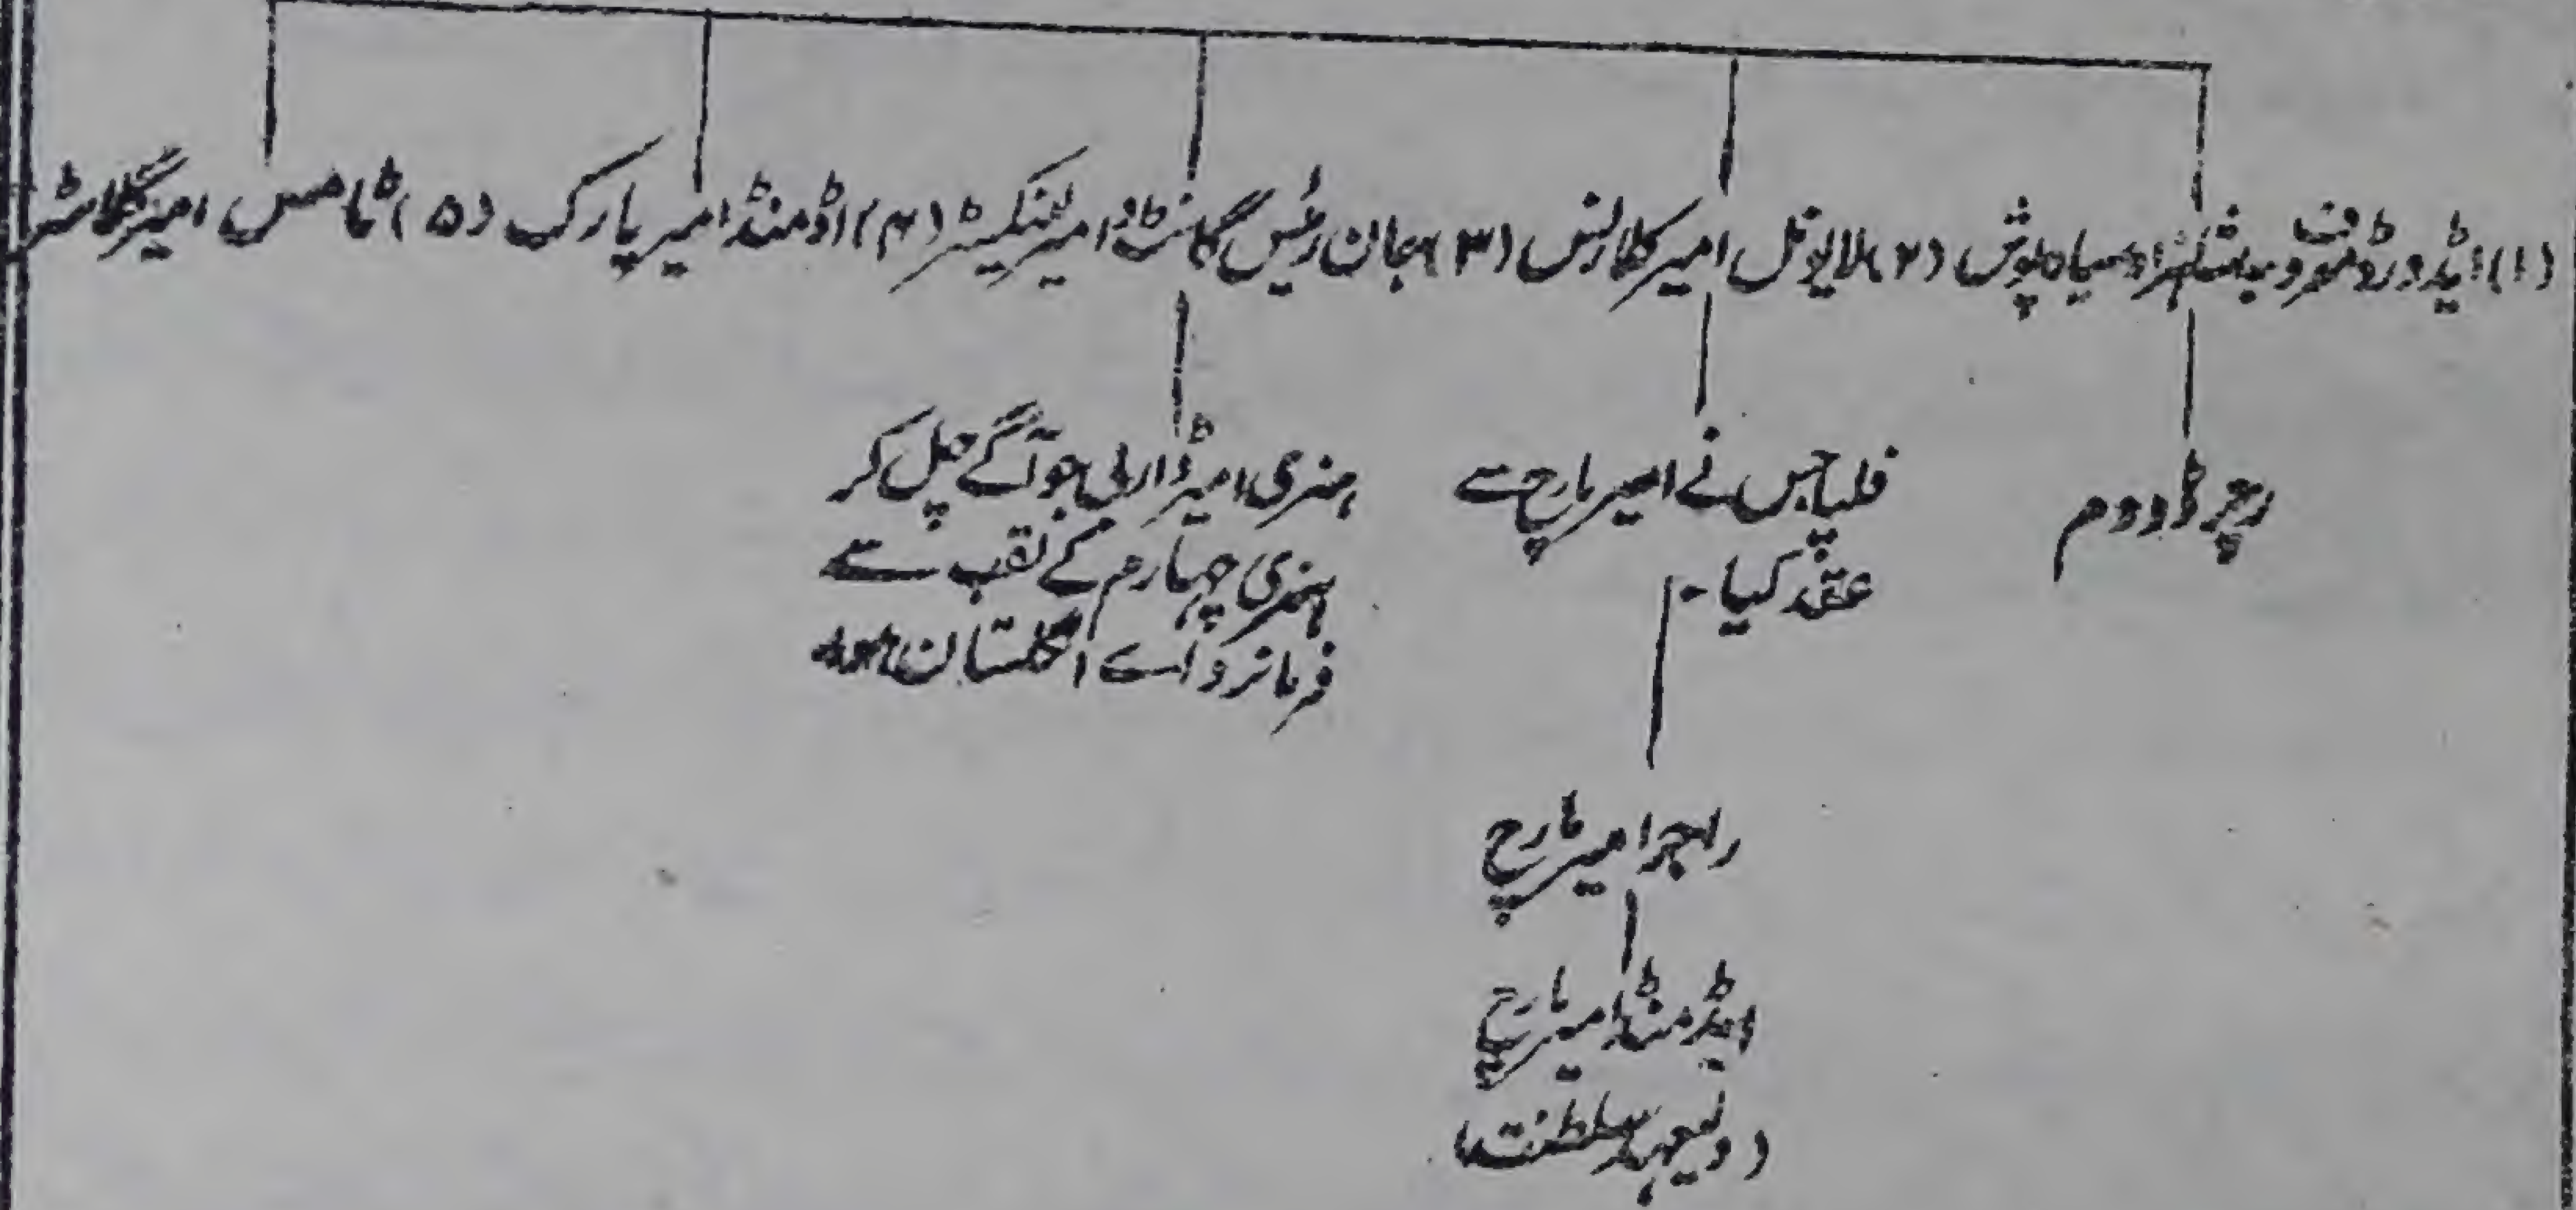 (۱) ایڈورڈ معروف بہ شاہزادہ سیاہ پوش (۲) لایونل امیر کلارنس (۳) جان رئیس گانٹ و امیر لنکیسٹر (۴) اڈمنڈ امیر یارک (۵) ٹامس امیر گلاسٹر
رچرڈ دوم
فلپا جس نے امیر مارچ سے
عقد کیا۔
ہنری امیر ڈاربی جو آگے چل کر
ہنری چہارم کے لقب سے
فرمانروائے انگلستان ہوا
راجر امیر مارچ
ایڈمنڈ امیر مارچ
(ولیعہد سلطنت)